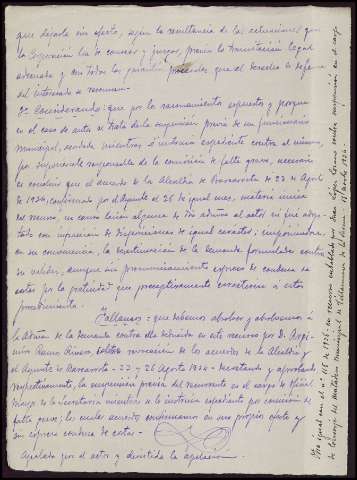 que dejarla sin efecto, según la resultancia de las actuaciones que
la Corporación ha de conocer y juzgar, previa la tramitación legal
adecuada y con todas las garantías procesales que el derecho de defensa
del interesado se reserva
2º Considerando: que por los razonamientos expuestos y porque
en el caso de autos se trata de la suspensión previa de un funcionario
municipal, acordada mientras se instruía expediente contra el mismo,
por suponérsele responsable de la comisión de falta grave, necesario
es concluir que el acuerdo de la Alcaldía de Barcarrota de 22 de Agosto
de 1934, confirmado por el Ayunto el 26 de igual mes, materia única
del recurso, no causa lesión alguna de los dchos del actor ni fue adop-
tado con infracción de disposiciones de igual carácter; imponiéndose,
en su consecuencia, la desestimación de la demanda formulada contra
su validez, aunque sin pronunciamiento expreso de condena de
costas por la gratuidad que preceptivamente caracteriza a este
procedimiento.
Fallamos: que debemos absolver y absolvemos a
la Admón de la demanda contra ella deducida en este recurso por D.
revocación de los acuerdos de la Alcaldía y
el Ayunto de Barcarrota - 22 y 26 Agosto 1934 - decretando y aprobando,
respectivamente, la suspensión previa del recurrente en el cargo de Oficial
Mayor de la Secretaría mientras se le instruía expediente por comisión de
falta grave; los cuales acuerdos confirmamos en sus propios efectos y
sin expresa condena de costas.-
Apelada por el actor y desistida la apelación.
Otro igual con el nº 118 de 1936, en recurso entablado por Juan López Lozano contra suspensión en el cargo
de Conserje del Matadero municipal de